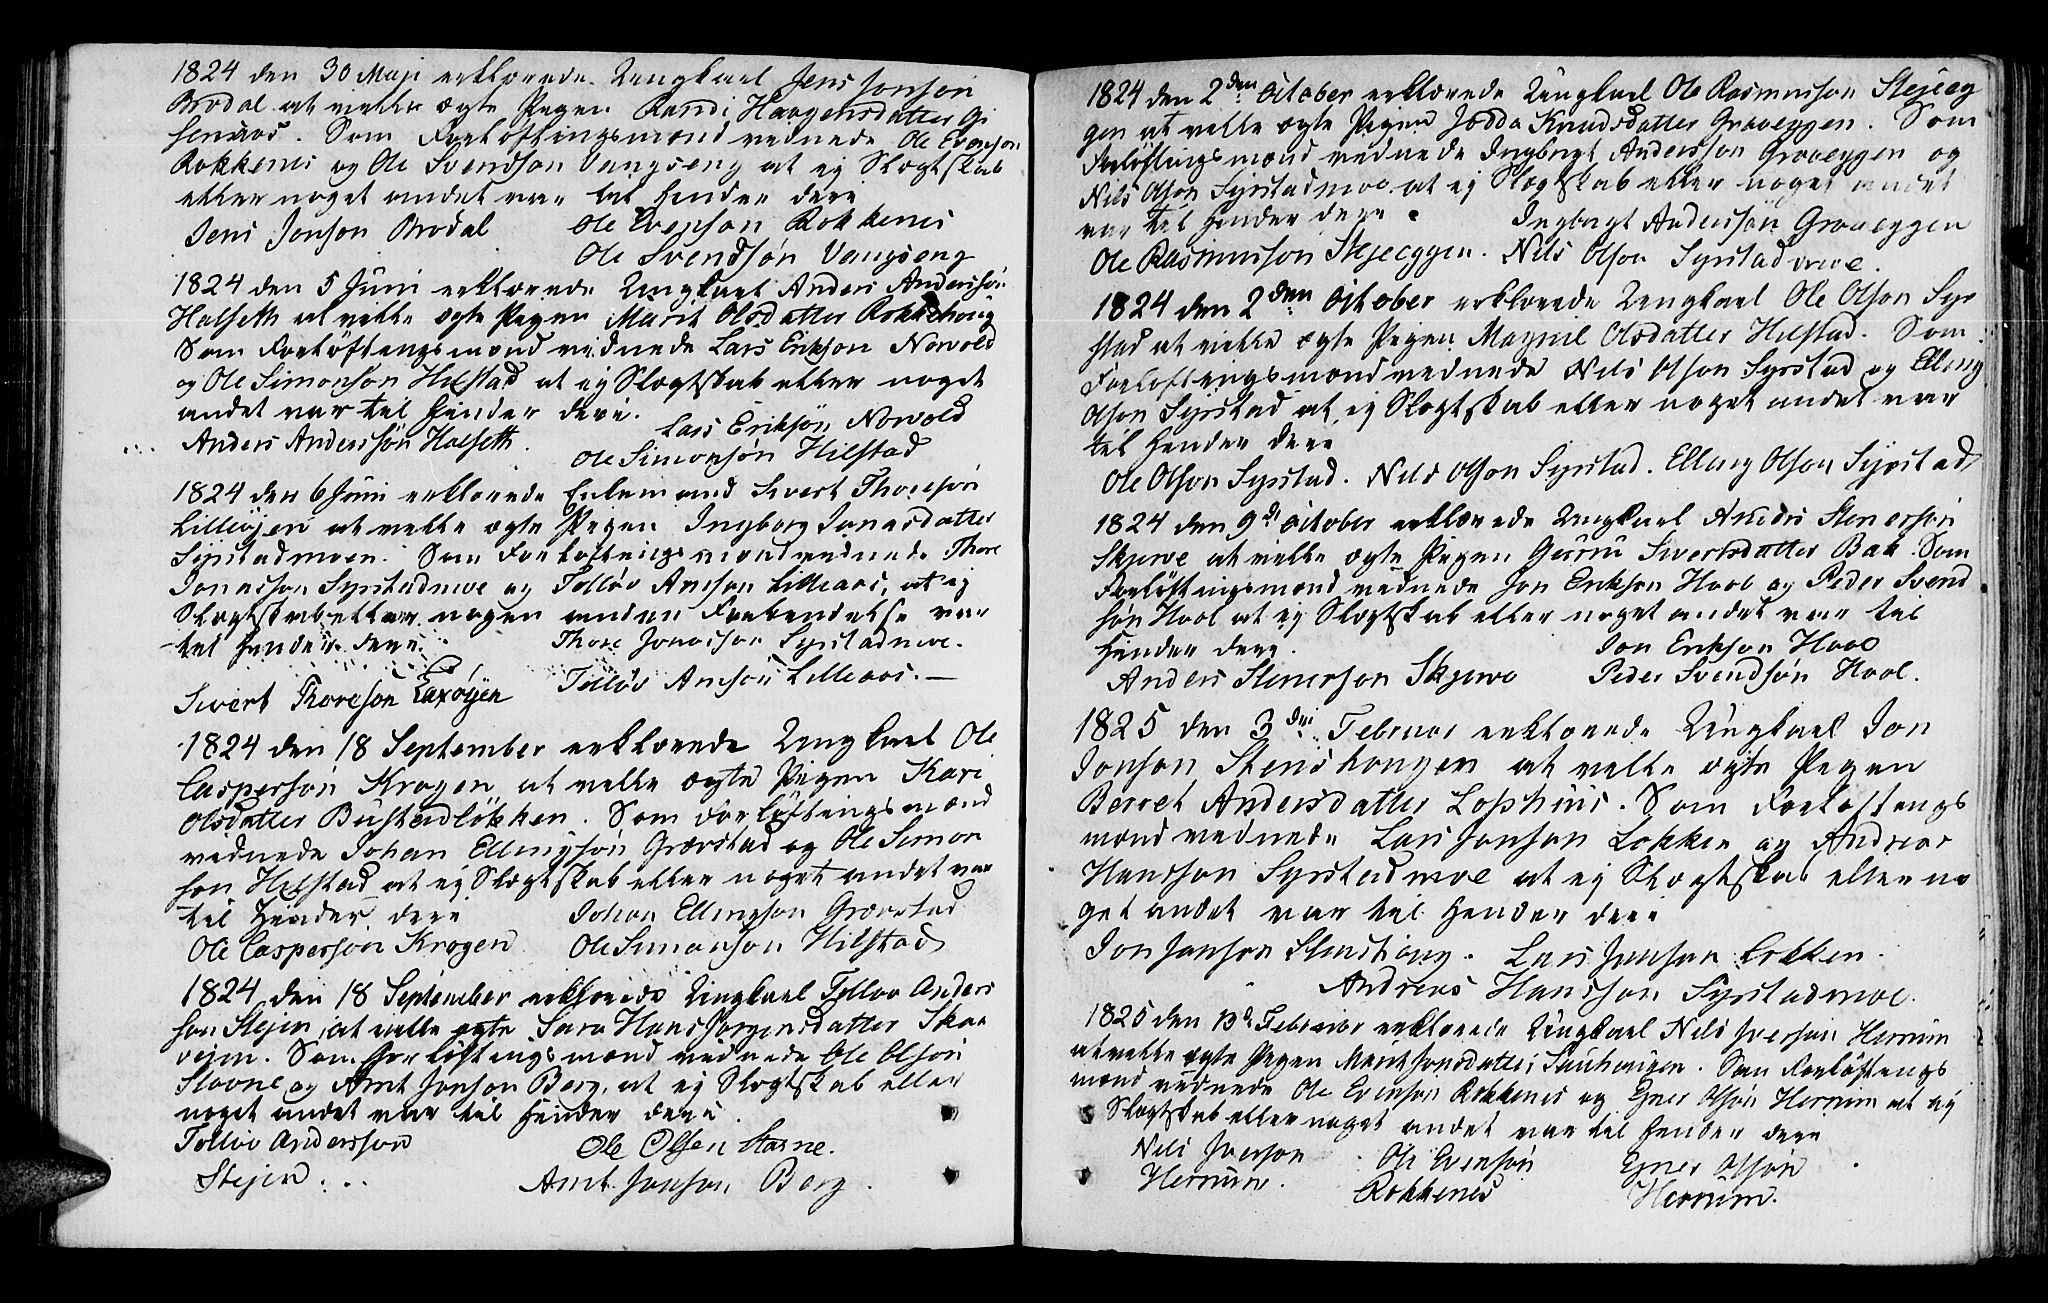 1824 den 30 Maji erklærede Ungkael Jens Jonson
Brodal at ville ægte Pigen Randi Haagensdatter Gi
senaas. Som Forløftingsmænd vidnede Ole Evenson
Rokkenes og Ole Svendson Vangseng at ej Slægtskab
eller noget andet var til Hinder deri
Jens Jonson Brodal Ole Evenson Rokkenes
Ole Svendsøn Vangseng
1824 den 5 Juni erklærede Ungkael Anders Anderssøn
Halseth at ville ægte Pigen Marit Olsdatter Rokkehoug
Som Forløftingsmænd vidnede Lars Erikson Norvold
og Ole Simonson Hilstad at ej Slægtskab eller noget
andet var til Hinder deri.
Anders Anderssøn Halseth. Lars Eriksøn Norvold
Ole Simonsøn Hilstad
1824 den 6 Juni erklærede Enkemand Sivert Thoresøn
Lilleøjen at ville ægte Pigen Ingborg Jonasdatter
Syrstadmoen. Som Forløftningsmænd vidnede Thore
Jonasson Syrstadmoe og Tolløv Amson Lilleaas, at ej
Slægtskab eller nogen anden Forbindelse var
til Hinder deri. Thore Jonasson Syrstadmoe.
Sivert Thoreson Laxøyen Tolløv Amsøn Lilleaas.—
1824 den 18 September erklærede Ungkael Ole
Caspersøn Krogen at ville ægte Pigen Kari
Olsdatter Bustadløkken. Som Forløftingsmænd
vidnede Johan Ellingsøn Grævstad og Ole Simon
son Hilstad at ej Slægtskab eller noget andet var
til Hinder deri Johan Ellingson Grævstad
Ole Casperson Krogen Ole Simonson Hilstad
1824 den 18 September erklærede Ungkael Tolløv Anders
son Stejen, at ville ægte Sara Hans Jørgensdatter Skaa
vejen. Som Forløftingsmænd vidnede Ole Olson
Stavne og Arnt Jonson Berg, at ej Slægtskab eller
noget andet var til Hinder deri.
Tolløv Andersson Ole Olsen Stavne.
Stejen. Arnt Jonson Berg.
1824 den 2den October erklærede Ungkael Ole Rasmusson Skjeeg
gen at ville ægte Pigen Jodda Knudsdatter Graveggen. Som
Forløftingsmænd vidnede Ingbrigt Andersson Graveggen og
Nils Olson Syrstadmoe at ej Slægtskab eller noget andet
var til Hinder deri. Ingbrigt Anderssøn Graveggen
Ole Rasmusson Skjeeggen. Nils Olson Syrstadmoe.
1824 den 2den October erklærede Ungkael Ole Olson Syr
stad at ville ægte Pigen Magnil Olsdatter Hilstad. Som
Forløftingsmænd vidnede Nils Olson Syrstad og Elling
Olson Syrstad at ej Slægtskab eller noget andet var
til Hinder deri
Ole Olson Syrstad. Nils Olson Syrstad. Elling Olson Syrstad
1824 den 9d October erklærede Ungkael Anders Stenerson
Skjerve at ville ægte Pigen Gurru Siwertsdatter Bak. Som
Forløftingsmænd vidnede Jon Erikson Hool og Peder Svend
søn Hool at ej Slægtskab eller noget andet var til
Hinder deri. Jon Erikson Hool
Anders Stenerson Skjerve Peder Svendsøn Hool.
1825 den 3die Februar erklærede Ungkael Jon
Jonson Stenshougen at ville ægte Pigen
Berret Andersdatter Lophuus. Som Forløftings
mænd vidnede Lars Jonson Løkken og Andreas
Hansson Syrstadmoe at ej Slægtskab eller no
get andet var til Hinder deri
Jon Jonson Stenshoug. Lars Jonson Løkken.
Andreas Hansson Syrstadmoe.
1825 den 13d Februar erklærede Ungkael Nils Iverson Herrum
at ville ægte Pigen Marit Jonsdatter Sauhougen. Som Forløftings
mænd vidnede Ole Evenson Rokkenes og Egner Olsøn Herrum at ej
Slægtskab eller noget andet var til Hinder deri
Nils Iverson Ole Evensøn Egner Olsøn
Herrum. Rokkenes Herrum.